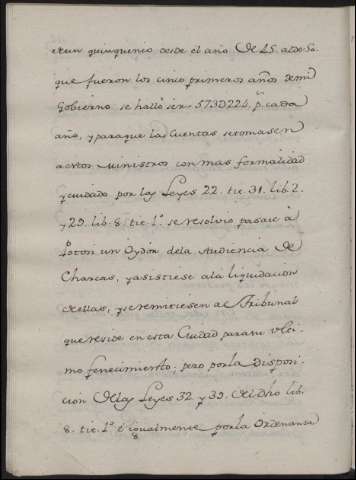 en un quinquenio desde el año De 45. al de 50
que fueron los cinco primeros años de mi
Gobierno se halló ser 573D224 ps. cada
año, y para que las Cuentas se tomasen
a estos Ministros con mas formalidad
y cuidado por las Leyes 22. tit. 31. lib. 2.
y 29. lib. 8. tit. 1º. se resolvio pasase à
Potosi un Oydor de la Audiencia de
Charcas, y asistiese a la liquidacion
de ellas, y se remitiesen al Tribunal
que reside en esta Ciudad para su ulti-
mo fenecimiento; pero por la Disposi-
cion de las Leyes 32 y 33. del dho lib.
8. tit. 1º. è igualmente por la Ordenanza